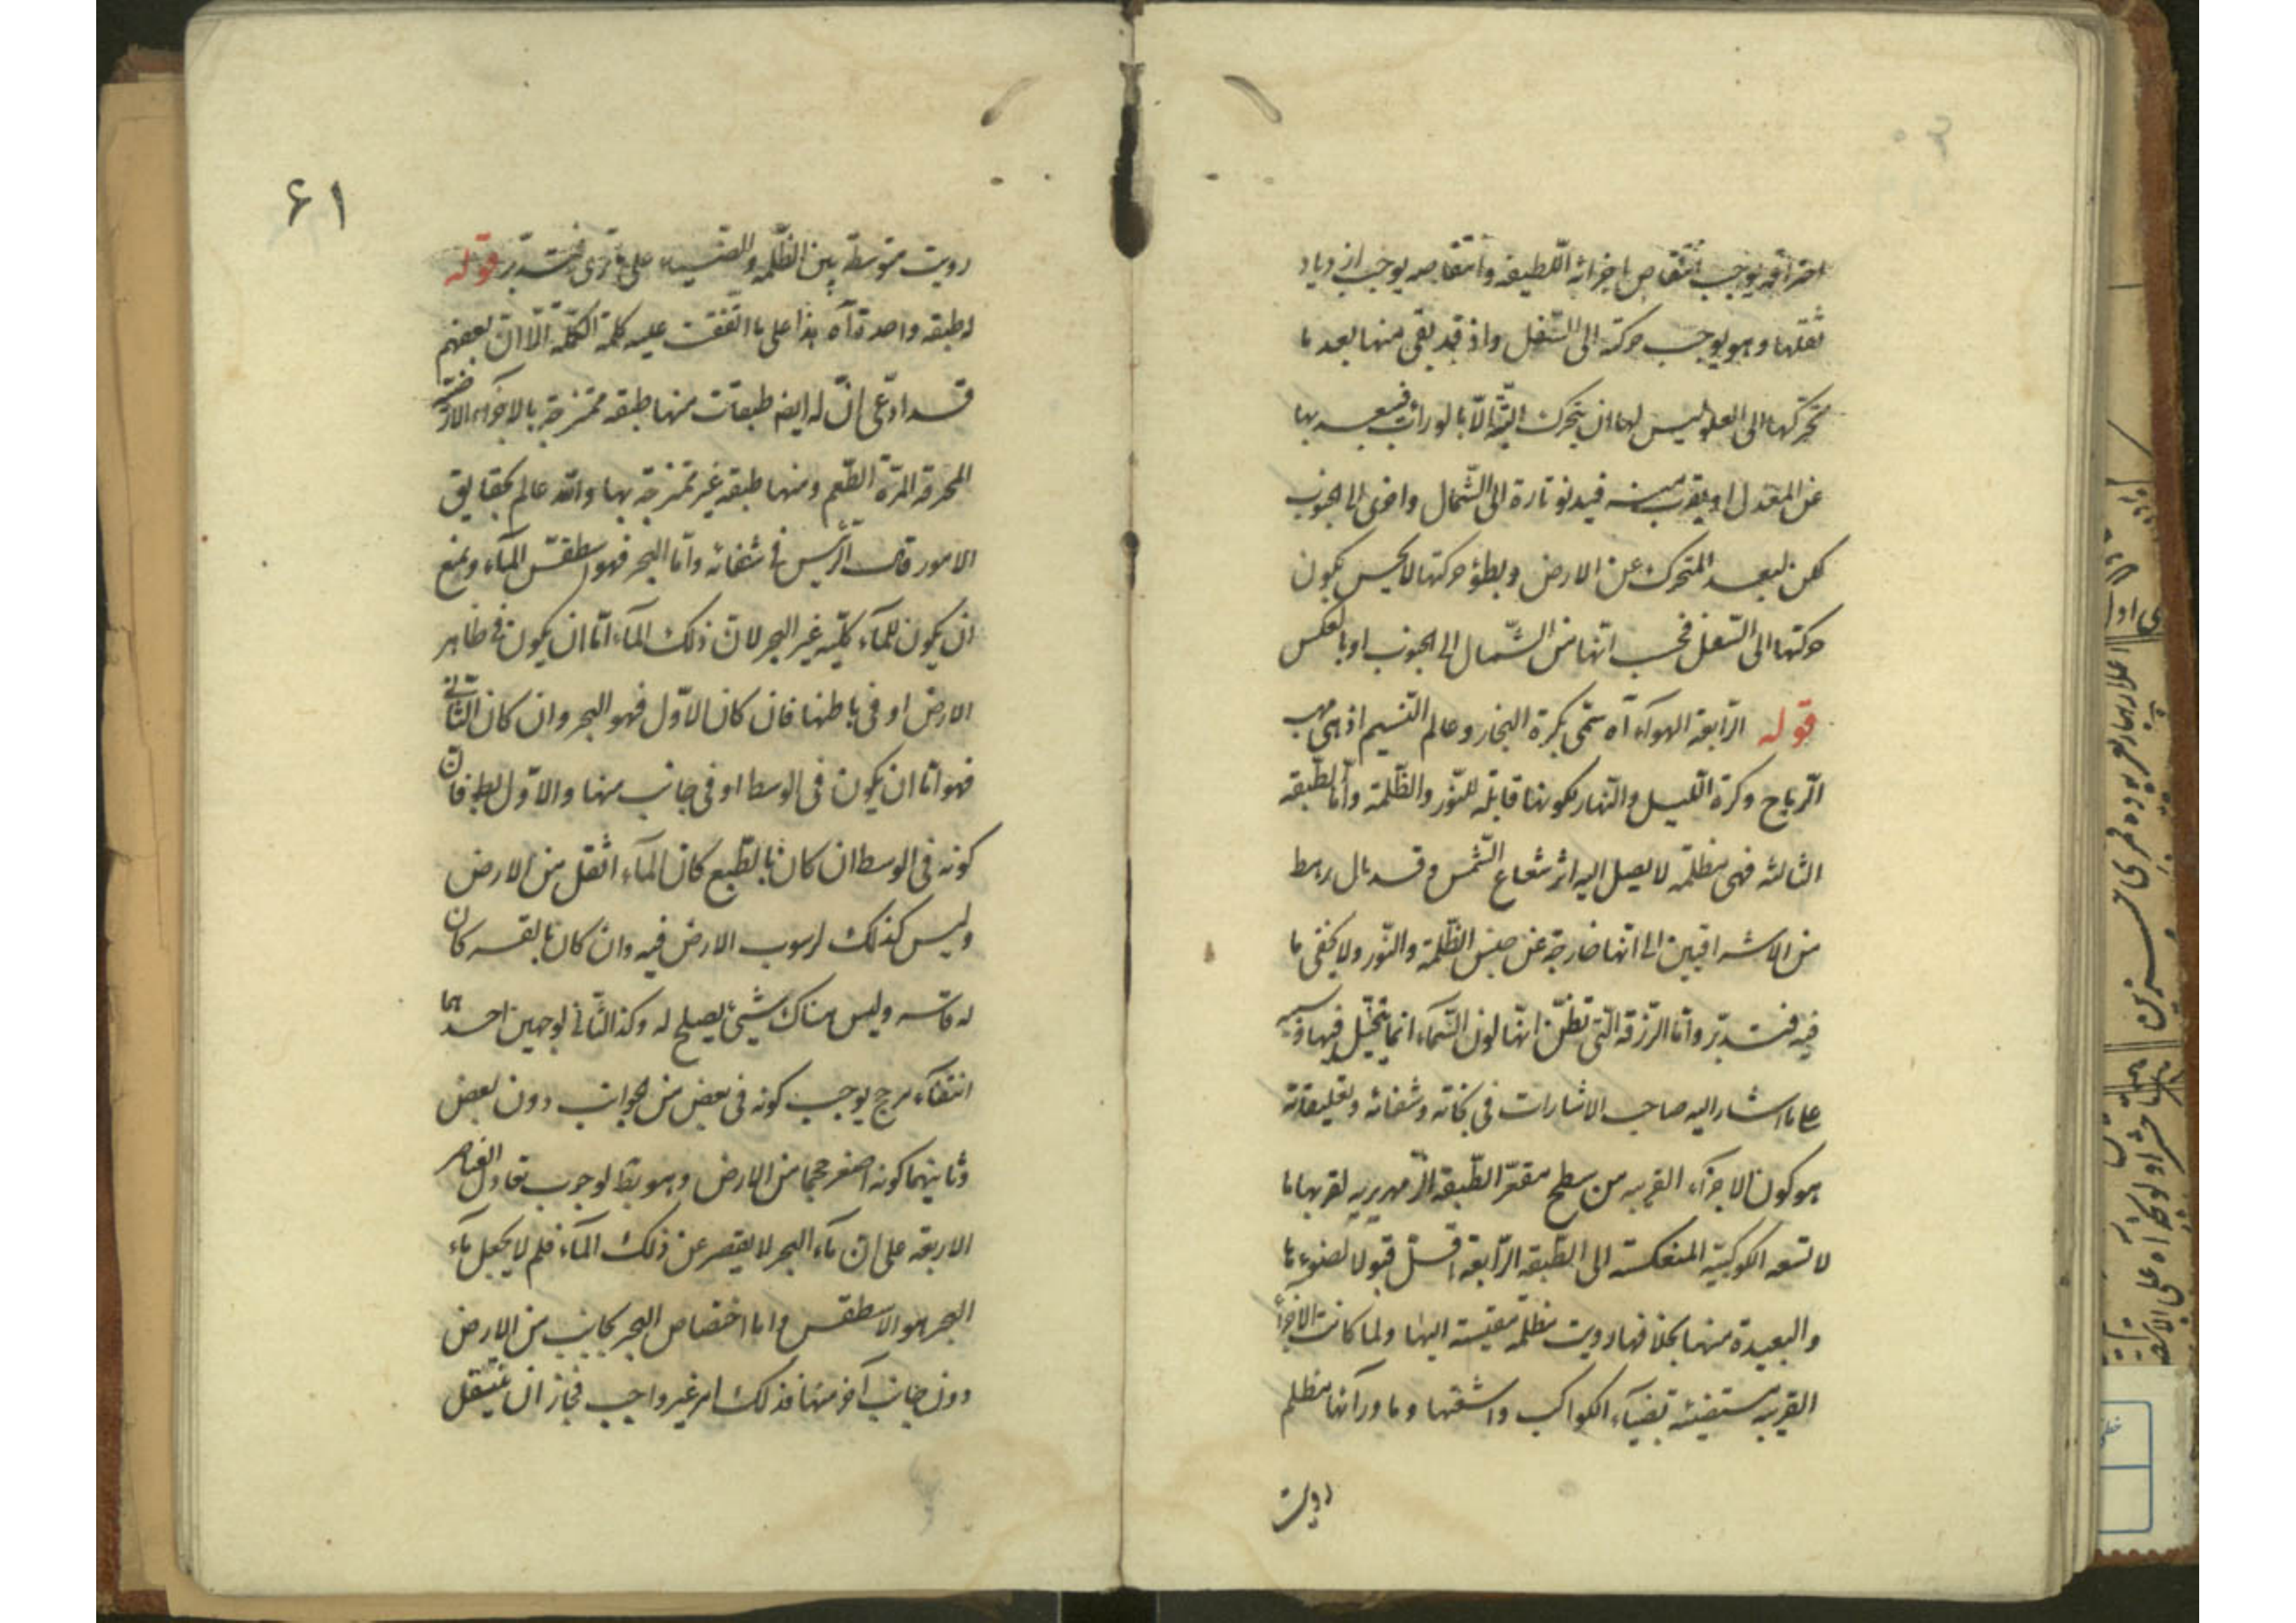 احتراقه يوجب انتقاص اجزائه اللطيفة وانتقاصه يوجب ازدياد
ثقلها وهو يوجب حركته الى السّفل واذ قد بقى منها بعد ما
تحركها الى العلو ليس لها ان يتحرك الّا بالوراب فيبعد بها
عن المعدل او يقرب منه فيدنو تارة الى الشّمال واخرى الى الجنوب
لكن لبعد المتحرك عن الارض وبطؤ حركتها لا يحس بكون
حركتها الى السّفل فيحسب انّها من الشّمال الى الجنوب او بالعكس
قوله الرّابعة الهوآء آه تسمّى بكرة البخار وعالم النّسيم اذ هى مهب
الرّياح وكرة اللّيل والنّهار لكونها قابلة للنّور والظّلمة وامّا الطّبقة
الثالثة فهى مظلمة لا يصل اليه اثر شعاع الشّمس وقد مال رهط
من الاشراقيين الى انّها خارجة عن جنس الظّلمة والنّور ولا يخفى ما
فيه فتدبّر وامّا الزّرقة الّتى تظنّ انّها لون السّماء انّما يتخيّل فيها وسببه
على ما اشار اليه صاحب الاشارات فى نجاته وشفائه وتعليقاته
هو كون الاجزآء القريبه من سطح مقعّر الطّبقة الزّمهريريه لقربها ما
لاشعه الكوكبيّة المنعكسة الى الطّبقة الرّابعة اقلّ قبولا لضوء ما
والبعيدة منها بخلافها رويت مظلمة مقيسة اليها ولما كانت الاجزآء
القريبه مستضيئه بضيآء الكواكب واشعّتها وما ورآئها مظلم
رويت
۶۱
رويت متوسّطة بين الظّلمة والضّياء على ما ترى فتدبّر قوله
له طبقه واحدة آه هذا على ما اتّفقت عليه كلمة الكملة الّا انّ بعضهم
قد ادّعى انّ له ايضا طبقات منها طبقه ممتزجة بالاجزآء الارضيّة
المحرقة المرّة الطّعم ومنها طبقه غير ممتزجة بها والله عالم بحقايق
الامور قال الرّئيس فى شفائه وامّا البحر فهو اسطقسّ المآء ويمنع
ان يكون للمآء كليّه غير البحر لانّ ذلك المآء امّا ان يكون فى ظاهر
الارض او فى باطنها فان كان الاوّل فهو البحر وان كان الثّانى
فهو امّا ان يكون فى الوسط او فى جانب منها والاوّل بط فانّ
كونه فى الوسط ان كان بالطّبع كان المآء اثقل من الارض
وليس كذلك لرسوب الارض فيه وان كان بالقسر كان
له قاسر وليس هناك شيئ يصلح له وكذا الثّانى لوجهين احدهما
انتفآء مرجح يوجب كونه فى بعض من الجوانب دون بعض
وثانيهما كونه اصغر حجما من الارض وهو بط لوجوب تعادل العناصر
الاربعة على انّ مآء البحر لا يقصر عن ذلك المآء فلم لا يجعل مآء
البحر هو الاسطقس واما اختصاص البحر بجانب من الارض
دون جانب آخر منها فذلك امر غير واجب فجاز ان ينتقل